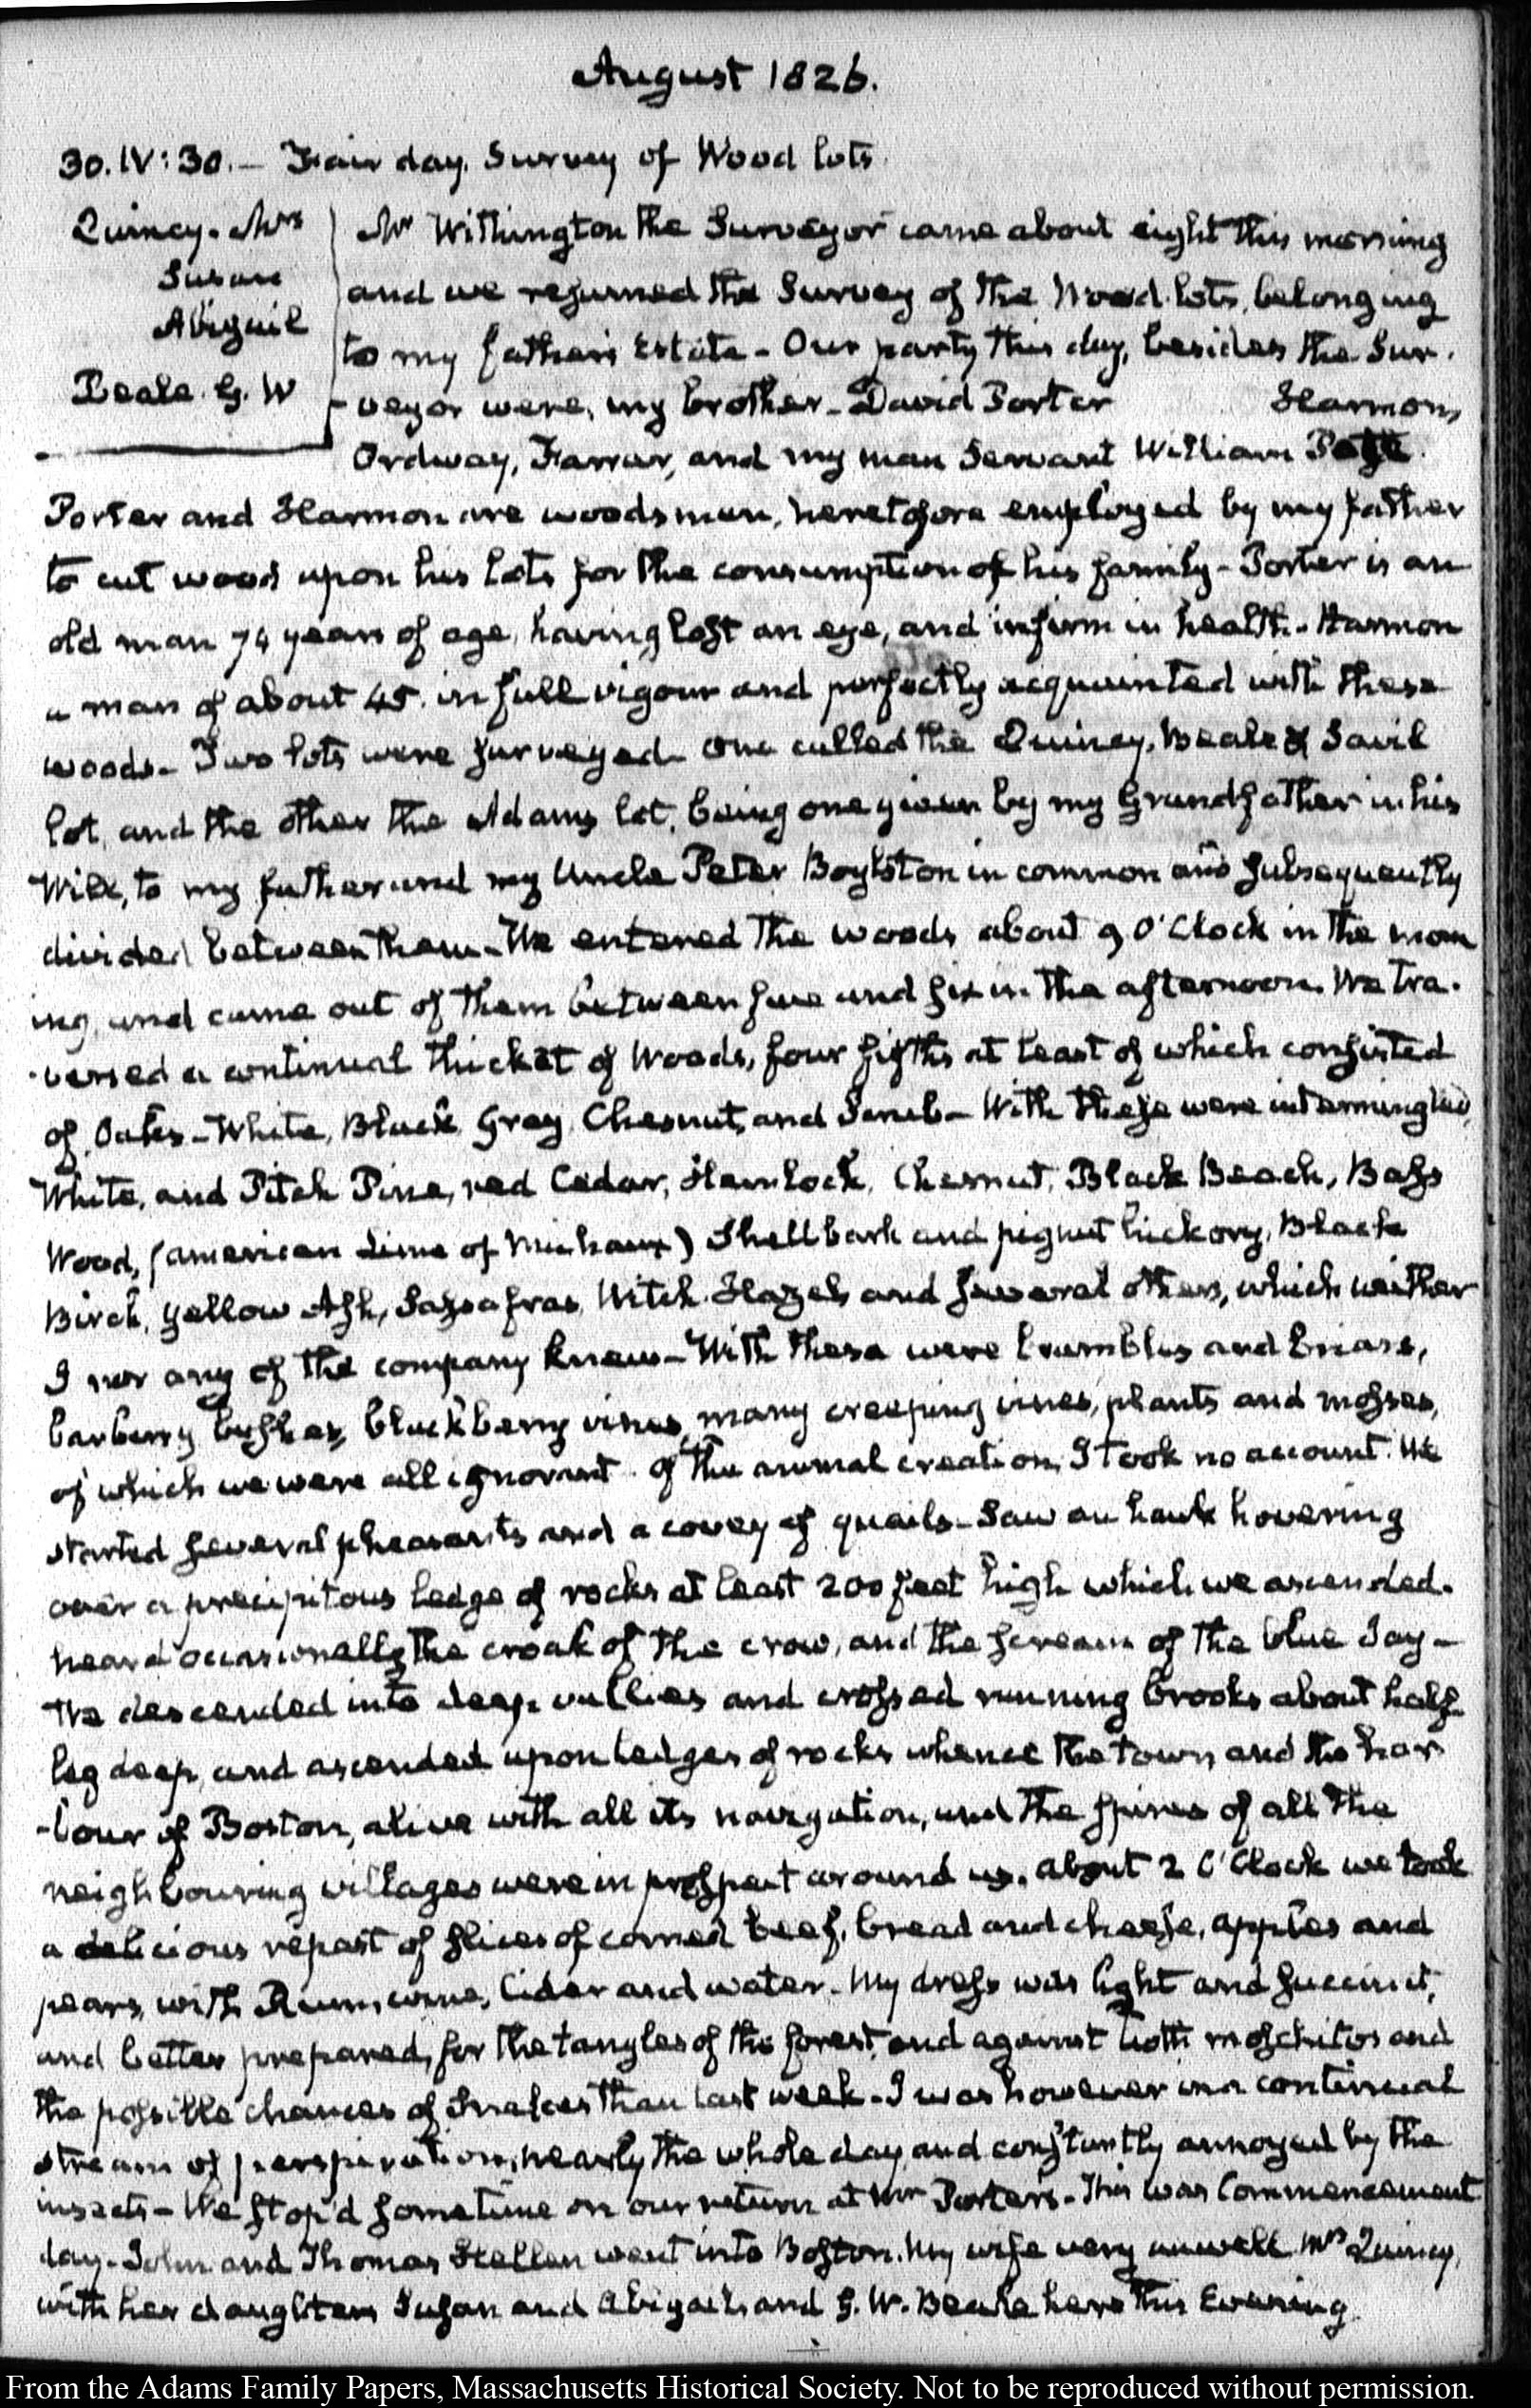 August 1826.
30. IV:30. — Fair day. Survey of Wood lots.
Quincy. Mrs
Susan
Abigail
Beale. G. W
Mr Withington the Surveyor came about eight this morning
and we resumed the Survey of the Wood lots, belonging
to my father's Estate — Our party this day, besides the Sur-
veyor were, my brother — David Porter Harmon,
Ordway, Farrar, and my man Servant William
Porter and Harmon are woodsmen, heretofore employed by my father
to cut wood upon his lots for the consumption of his family — Porter is an
old man 74 years of age, having lost an eye, and infirm in health — Harmon
a man of about 45. in full vigour and perfectly acquainted with these
woods — Two lots were surveyed — One called the Quincy, Beale & Savil
lot, and the other the Adams lot, being one given by my Grandfather in his
Will, to my father and my Uncle Peter Boylston in common and subsequently
divided between them — We entered the woods about 9 O'Clock in the morn
ing, and came out of them between five and six in the afternoon. We tra-
-versed a continual thicket of Woods, four fifths at least of which consisted
of Oaks — White, Black, Gray, Chesnut, and Scrub — With these were intermingled,
White, and Pitch Pine, red Cedar, Hemlock, Chesnut, Black Beach, Bass
Wood, (american Lime of Michaux) Shellbark and pignut hickory, Black
Birch, yellow Ash, Sassafras, Witch Hazel, and several others, which neither
I nor any of the company knew — With these were brambles and briars,
barberry bushes, blackberry vines, many creeping vines, plants and mosses,
of which we were all ignorant. Of the animal creation, I took no account. We
started several pheasants and a covey of quails — Saw an hawk hovering
over a precipitous ledge of rocks at least 200 feet high which we ascended.
heard occasionally the croak of the crow, and the scream of the blue Jay —
We descended into deep vallies and crossed running brooks about half
leg deep, and ascended upon ledges of rocks whence the town and the har
-bour of Boston, alive with all its navigation, and the spires of all the
neighbouring villages were in prospect around us. about 2 O'Clock we took
a delicious repast of slices of corned beef, bread and cheese, apples and
pears, with Rum, wine, Cider and water. My dress was light and succinct,
and better prepared, for the tangles of the forest, and against both moschitos and
the possible chances of Snakes than last week — I was however in a continual
stream of perspiration, nearly the whole day, and constantly annoyed by the
insects — We stop'd sometime on our return at Mr Porter's — This was Commencement
day — John and Thomas Hellen went into Boston. My wife very unwell. Mrs Quincy,
with her daughters Susan and Abigail, and G. W. Beale here this Evening
From the Adams Family Papers, Massachusetts Historical Society. Not to be reproduced without permission.